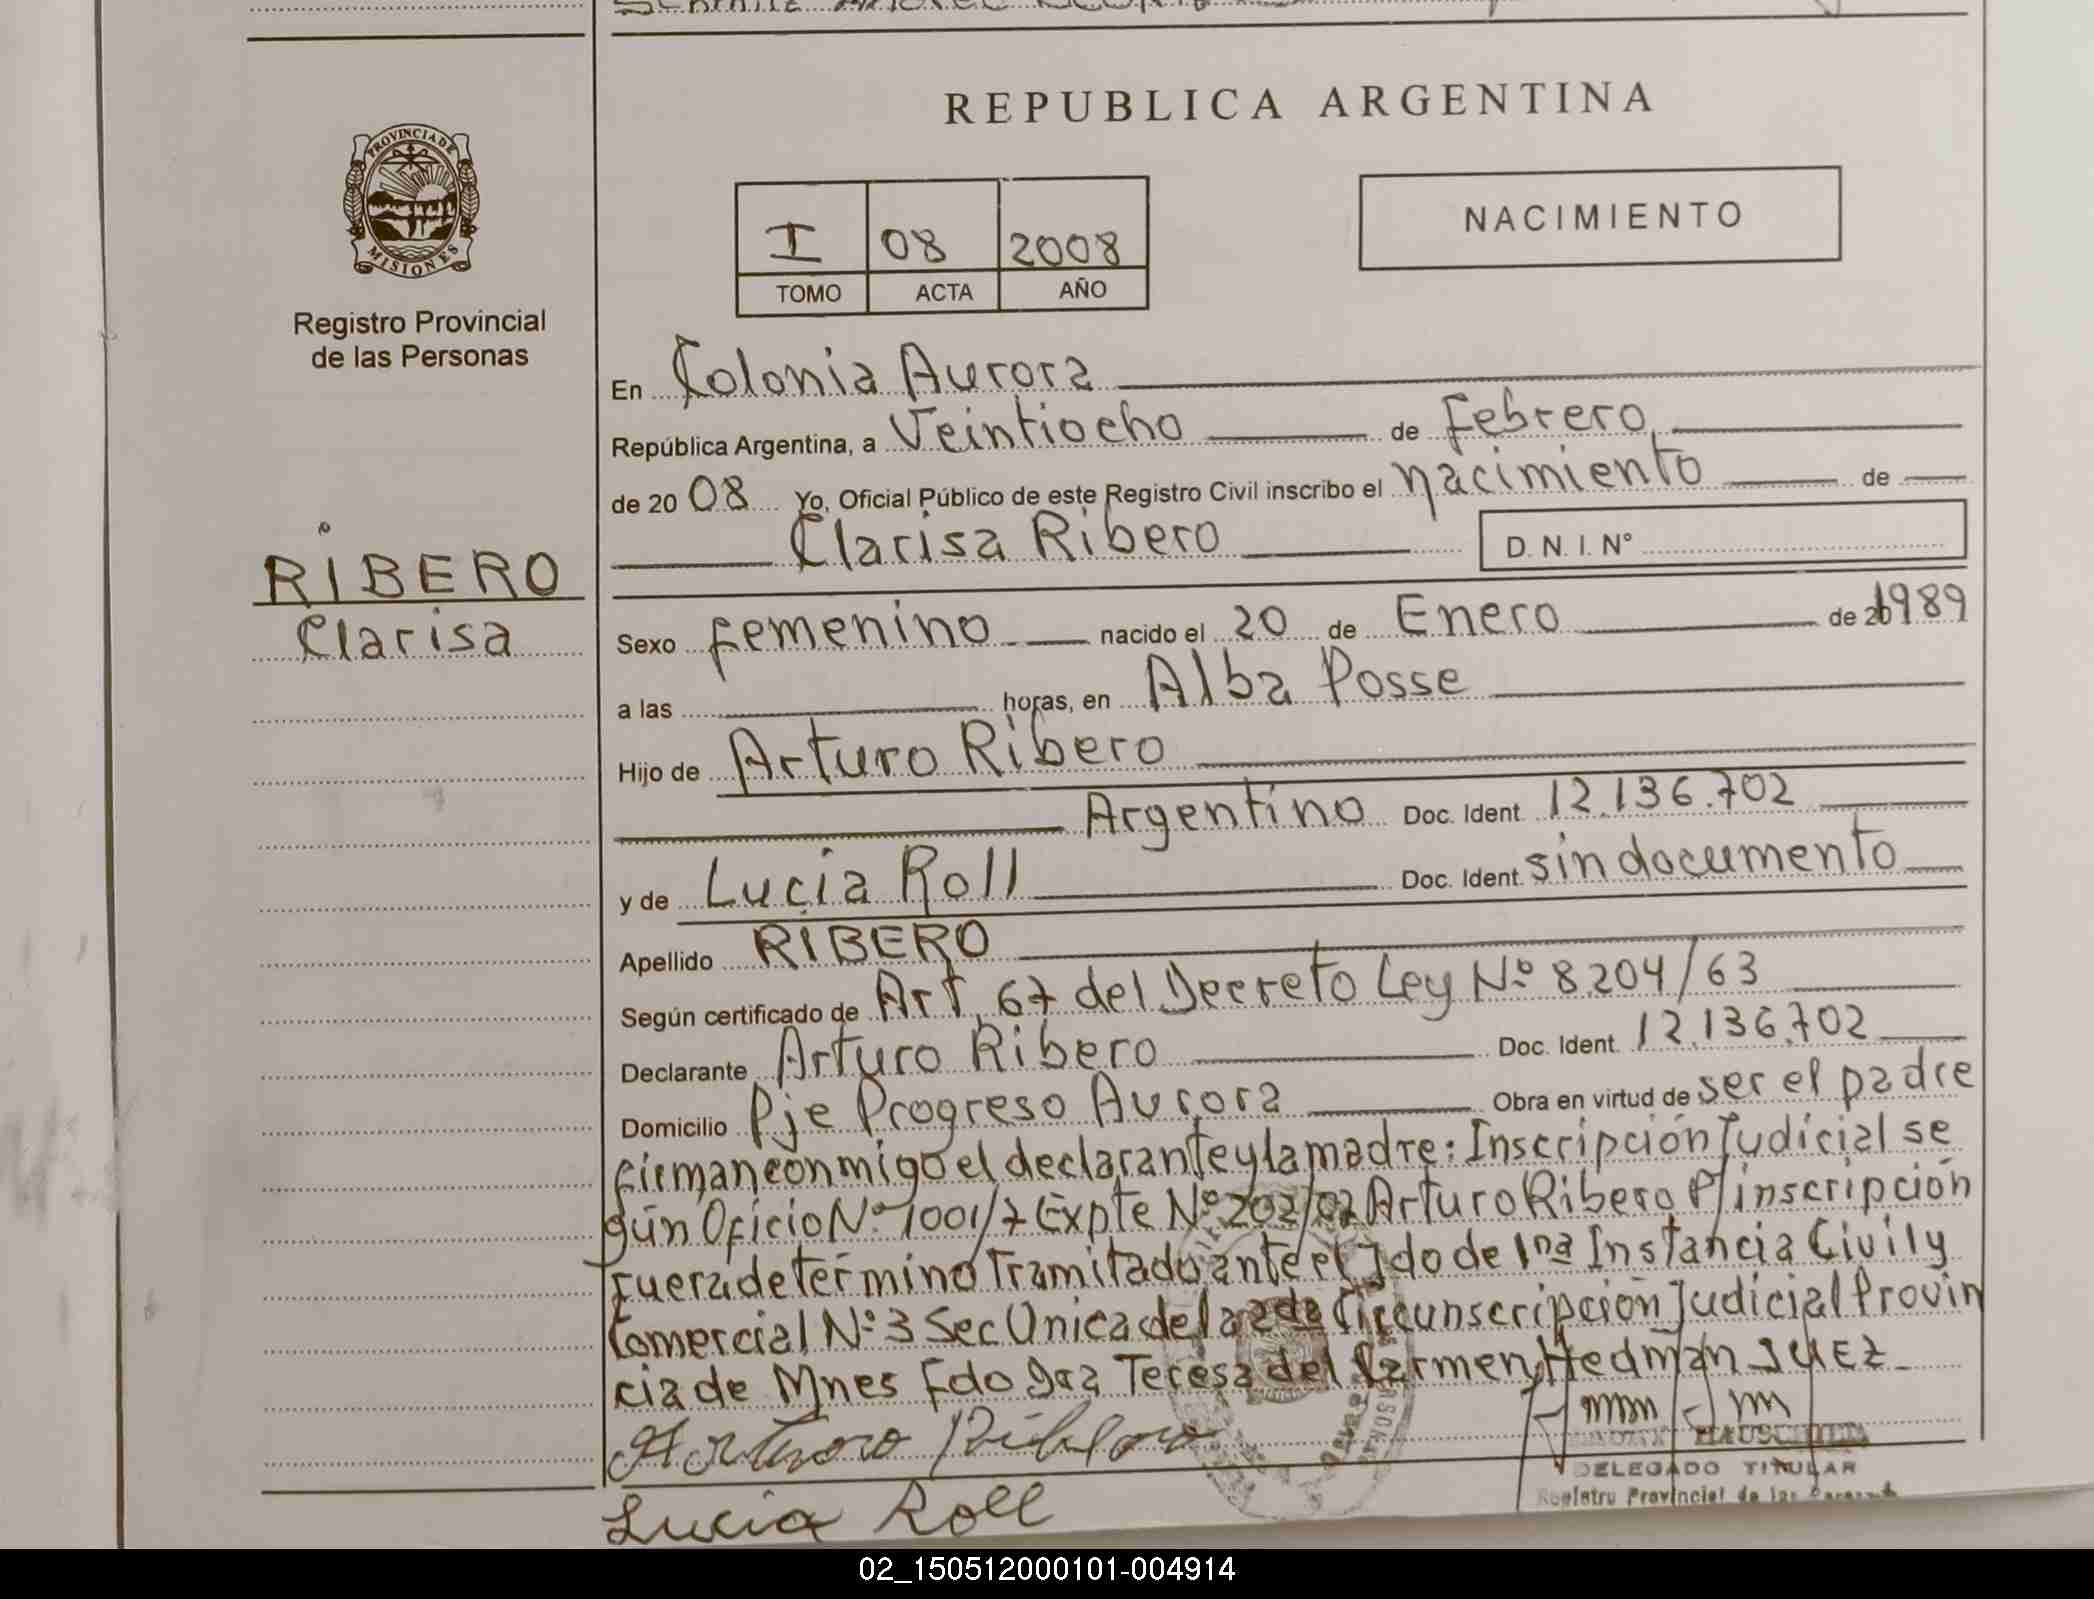 REPUBLICA ARGENTINA
PROVINCIA DE
MISIONES
Registro Provincial
de las Personas
I 08 2008
TOMO ACTA AÑO
NACIMIENTO
RIBERO
Clarisa
En Colonia Aurora
República Argentina, a Veintiocho de Febrero
de 20 08 Yo, Oficial Público de este Registro Civil inscribo el nacimiento de
Clarisa Ribero D. N. I. Nº
Sexo femenino nacido el 20 de Enero de 1989
a las horas, en Alba Posse
Hijo de Arturo Ribero
Argentino Doc. Ident. 12.136.702
y de Lucia Roll Doc. Ident. sin documento
Apellido RIBERO
Según certificado de Art. 67 del Decreto Ley Nº 8.204/63
Declarante Arturo Ribero Doc. Ident. 12.136.702
Domicilio Pje Progreso Aurora Obra en virtud de ser el padre
firman conmigo el declarante y la madre: Inscripción Judicial se
gún Oficio Nº 1001/7 Expte Nº 202/02 Arturo Ribero P/ inscripción
fuera de término Tramitado ante el Jdo de 1na Instancia Civil y
Comercial Nº 3 Sec Unica de la 2da Circunscripción Judicial Provin
cia de Mnes Fdo Dra Teresa del Carmen Hedman JUEZ
Arturo Ribero
Lucia Roll
DELEGADO TITULAR
Registro Provincial de las
02_150512000101-004914